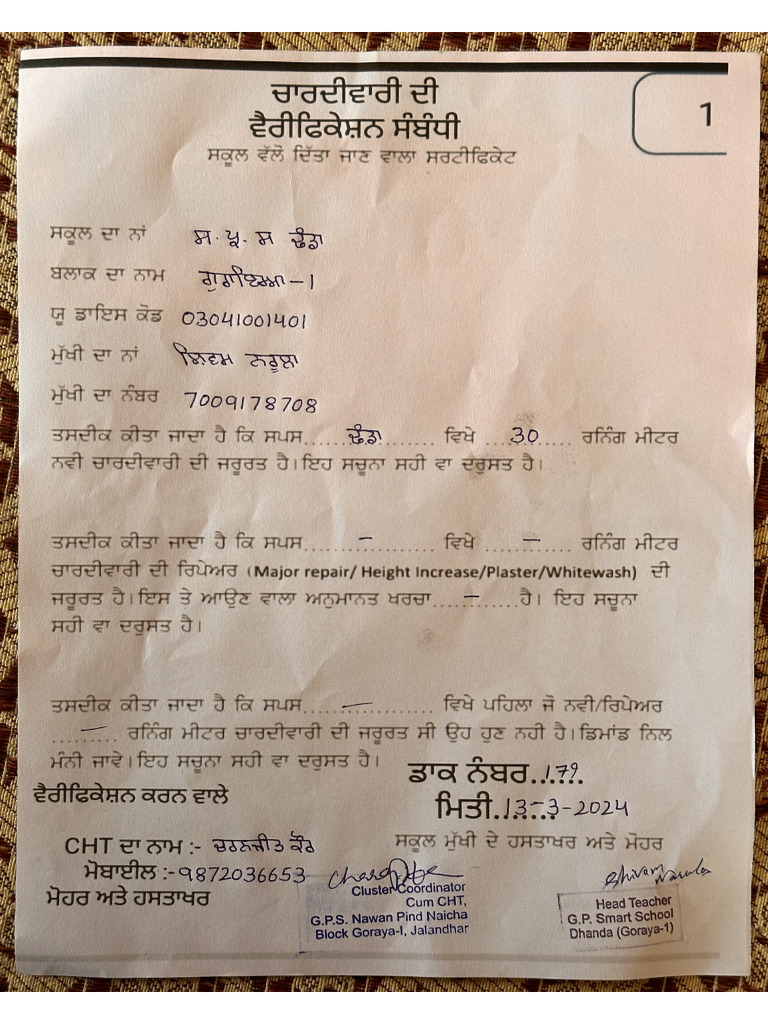 ਚਾਰਦੀਵਾਰੀ ਦੀ
ਵੈਰੀਫਿਕੇਸ਼ਨ ਸੰਬੰਧੀ
1
ਸਕੂਲ ਵੱਲੋ ਦਿੱਤਾ ਜਾਣ ਵਾਲਾ ਸਰਟੀਫਿਕੇਟ
ਸਕੂਲ ਦਾ ਨਾਂ ਸ. ਪ੍ਰ. ਸ ਢੰਡਾ
ਬਲਾਕ ਦਾ ਨਾਮ ਗੁਰਾਇਆ-1
ਯੂ ਡਾਇਸ ਕੋਡ 03041001401
ਮੁੱਖੀ ਦਾ ਨਾਂ ਸ਼ਿਵਮ ਨਰੂਲਾ
ਮੁੱਖੀ ਦਾ ਨੰਬਰ 7009178708
ਤਸਦੀਕ ਕੀਤਾ ਜਾਦਾ ਹੈ ਕਿ ਸਪਸ......ਢੰਡਾ........ ਵਿਖੇ ....30..... ਰਨਿੰਗ ਮੀਟਰ
ਨਵੀ ਚਾਰਦੀਵਾਰੀ ਦੀ ਜਰੂਰਤ ਹੈ।ਇਹ ਸਚੂਨਾ ਸਹੀ ਵਾ ਦਰੁਸਤ ਹੈ।
ਤਸਦੀਕ ਕੀਤਾ ਜਾਦਾ ਹੈ ਕਿ ਸਪਸ........-......... ਵਿਖੇ .....-..... ਰਨਿੰਗ ਮੀਟਰ
ਚਾਰਦੀਵਾਰੀ ਦੀ ਰਿਪੇਅਰ (Major repair/ Height Increase/Plaster/Whitewash) ਦੀ
ਜਰੂਰਤ ਹੈ।ਇਸ ਤੇ ਆਉਣ ਵਾਲਾ ਅਨੁਮਾਨਤ ਖਰਚਾ....-.......ਹੈ। ਇਹ ਸਚੂਨਾ
ਸਹੀ ਵਾ ਦਰੁਸਤ ਹੈ।
ਤਸਦੀਕ ਕੀਤਾ ਜਾਦਾ ਹੈ ਕਿ ਸਪਸ......-........... ਵਿਖੇ ਪਹਿਲਾ ਜੋ ਨਵੀ/ਰਿਪੇਅਰ
....-..... ਰਨਿੰਗ ਮੀਟਰ ਚਾਰਦੀਵਾਰੀ ਦੀ ਜਰੂਰਤ ਸੀ ਉਹ ਹੁਣ ਨਹੀ ਹੈ।ਡਿਮਾਂਡ ਨਿਲ
ਮੰਨੀ ਜਾਵੇ।ਇਹ ਸਚੂਨਾ ਸਹੀ ਵਾ ਦਰੁਸਤ ਹੈ।
ਡਾਕ ਨੰਬਰ..179...
ਵੈਰੀਫਿਕੇਸ਼ਨ ਕਰਨ ਵਾਲੇ
ਮਿਤੀ.13-3-2024
ਸਕੂਲ ਮੁੱਖੀ ਦੇ ਹਸਤਾਖਰ ਅਤੇ ਮੋਹਰ
CHT ਦਾ ਨਾਮ :- ਚਰਨਜੀਤ ਕੌਰ
ਮੋਬਾਈਲ :-9872036653
ਮੋਹਰ ਅਤੇ ਹਸਤਾਖਰ
Cluster Coordinator
Cum CHT,
G.P.S. Nawan Pind Naicha
Block Goraya-I, Jalandhar
Shivam Narula
Head Teacher
G.P. Smart School
Dhanda (Goraya-1)